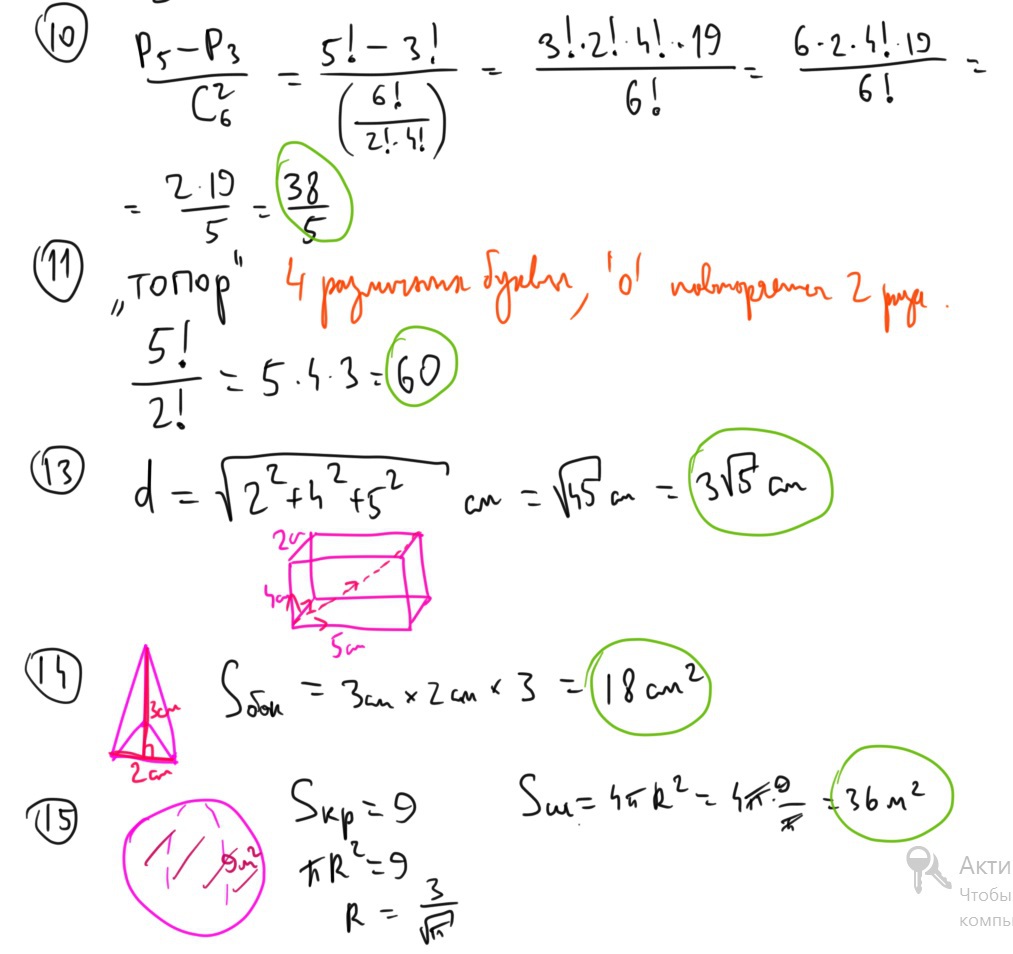 10
P₅ − P₃ / C₆² = 5! − 3! / (6! / 2!·4!) = 3!·2!·4!·19 / 6! = 6·2·4!·19 / 6! =
= 2·19 / 5 = 38 / 5
11
„топор" 4 различных буквы, 'о' повторяется 2 раза.
5! / 2! = 5·4·3 = 60
13
d = √(2² + 4² + 5²) см = √45 см = 3√5 см
2см
4см
5см
14
Sбок = 3см × 2см × 3 = 18 см²
3см
2см
15
Sкр = 9
Sш = 4πR² = 4π·9/π = 36 м²
9м²
πR² = 9
R = 3 / √π
Акти
Чтобы
компь